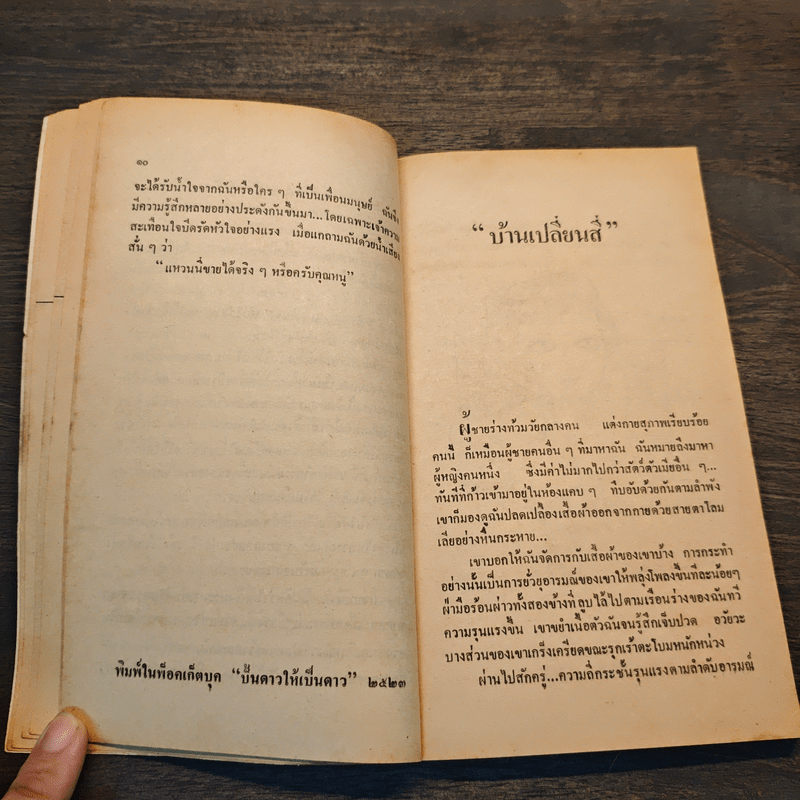 ๑๐
จะได้รับน้ำใจจากฉันหรือใคร ๆ ที่เป็นเพื่อนมนุษย์ ฉันจึง
มีความรู้สึกหลายอย่างประดังกันขึ้นมา...โดยเฉพาะเจ้าความ
สะเทือนใจบีดรัดหัวใจอย่างแรง เมื่อแกถามฉันด้วยน้ำเสียง
สั่น ๆ ว่า
“แหวนนี่ขายได้จริง ๆ หรือครับคุณหนู”
พิมพ์ในพ็อคเก็ตบุค “ปั้นดาวให้เป็นดาว” ๒๕๒๓
“บ้านเปลี่ยนสี”
ผู้ชายร่างท้วมวัยกลางคน แต่งกายสุภาพเรียบร้อย
คนนี้ ก็เหมือนผู้ชายคนอื่น ๆ ที่มาหาฉัน ฉันหมายถึงมาหา
ผู้หญิงคนหนึ่ง ซึ่งมีค่าไม่มากไปกว่าสัตว์ตัวเมียอื่น ๆ...
ทันทีที่ก้าวเข้ามาอยู่ในห้องแคบ ๆ ที่บอับด้วยกันตามลำพัง
เขาก็มองดูฉันปลดเปลื้องเสื้อผ้าออกจากกายด้วยสายตาโลม
เลียอย่างหื่นกระหาย...
เขาบอกให้ฉันจัดการกับเสื้อผ้าของเขาบ้าง การกระทำ
อย่างนั้นเป็นการยั่วยุอารมณ์ของเขาให้พลุ่งโพลงขึ้นทีละน้อยๆ
ฝ่ามือร้อนผ่าวทั้งสองข้างที่ลูบไล้ไปตามเรือนร่างของฉันทวี
ความรุนแรงขึ้น เขาขยำเนื้อตัวฉันจนรู้สึกเจ็บปวด อวัยวะ
บางส่วนของเขาเกร็งเครียดขณะรุกเร้าตะโบมหนักหน่วง
ผ่านไปสักครู่...ความถี่กระชั้นรุนแรงตามลำดับอารมณ์